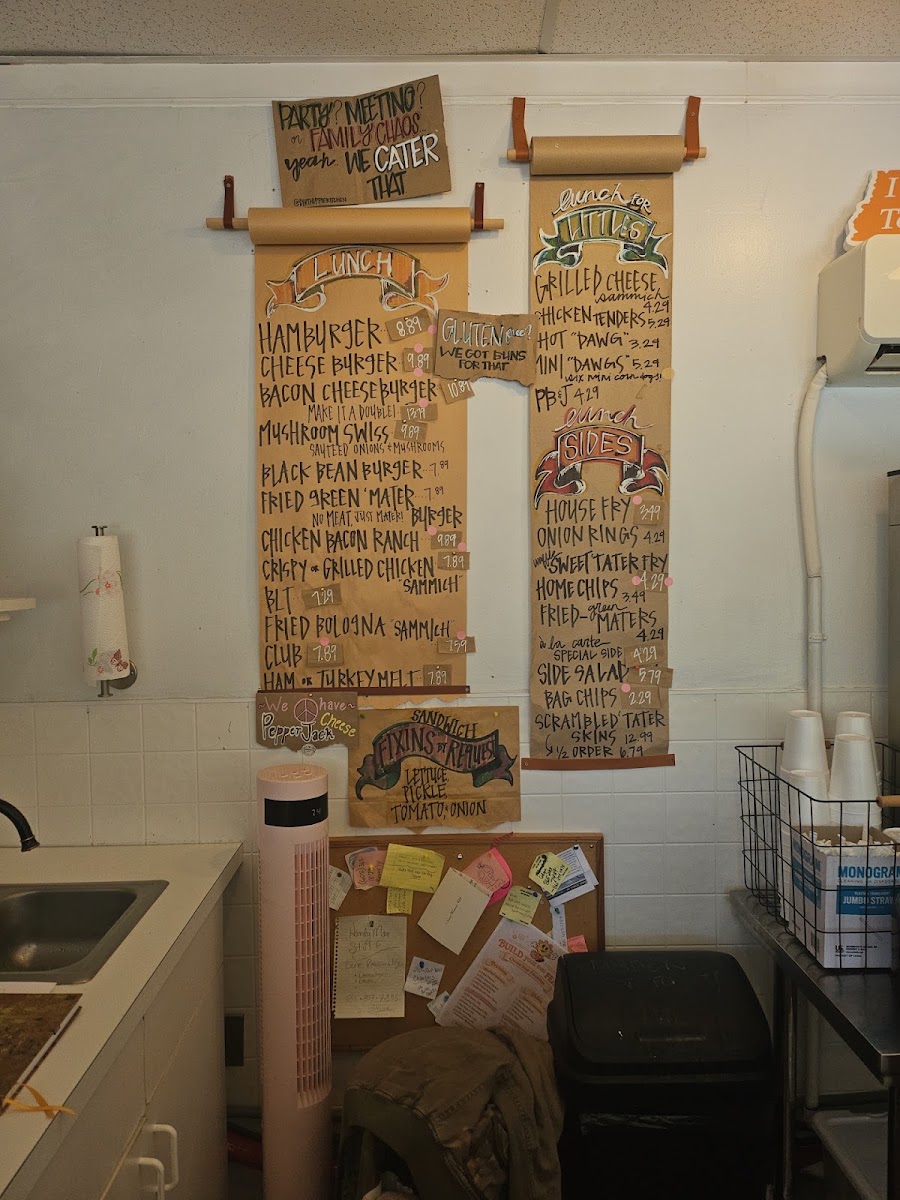 PARTY? MEETING?
or FAMILY CHAOS
yeah WE CATER
THAT
LUNCH
HAMBURGER 8.89
CHEESE BURGER 9.89
BACON CHEESEBURGER 10.89
MAKE IT A DOUBLE! 13.79
MUSHROOM SWISS 9.89
SAUTEED ONIONS & MUSHROOMS
BLACK BEAN BURGER...7.89
FRIED GREEN 'MATER...7.89
NO MEAT, JUST MATER! BURGER
CHICKEN BACON RANCH 9.89
CRISPY or GRILLED CHICKEN 7.89
"SAMMICH"
BLT 7.29
FRIED BOLOGNA "SAMMICH"
7.59
CLUB 7.89
HAM OR TURKEY MELT 7.89
GLUTEN free?
WE GOT BUNS
FOR THAT
~We have~
Pepper Jack Cheese
SANDWICH
FIXINS BY REQUEST
LETTUCE,
PICKLE,
TOMATO, ONION
Lunch FOR
LITTLES
GRILLED CHEESE
sammich 4.29
CHICKEN TENDERS 5.29
HOT "DAWG" 3.29
MINI "DAWGS" 5.29
six mini corn dogs!
PB&J 4.29
Lunch
SIDES
HOUSE FRY 3.49
ONION RINGS 4.29
SWEET 'TATER FRY
4.29
HOME CHIPS 3.49
FRIED-green
MATERS
4.29
à la carte
SPECIAL SIDE 4.29
SIDE SALAD 5.79
BAG CHIPS 2.29
SCRAMBLED 'TATER
SKINS 12.99
1/2 ORDER 6.79
I
MONOGRAM
JUMBO STRAW
BUILD